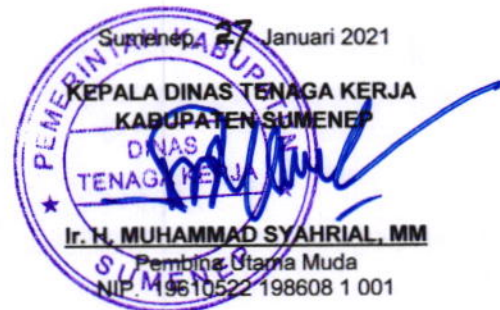 Sumenep, 27 Januari 2021
KEPALA DINAS TENAGA KERJA
KABUPATEN SUMENEP
Ir. H. MUHAMMAD SYAHRIAL, MM
Pembina Utama Muda
NIP. 19610522 198608 1 001
PEMERINTAH KABUPATEN
DINAS
TENAGA KERJA
SUMENEP